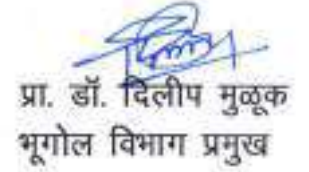 प्रा. डॉ. दिलीप मुळूक
भूगोल विभाग प्रमुख